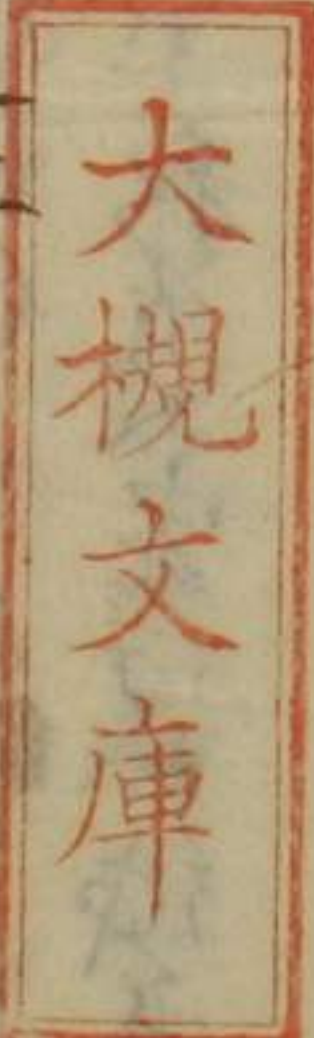 大槻文庫